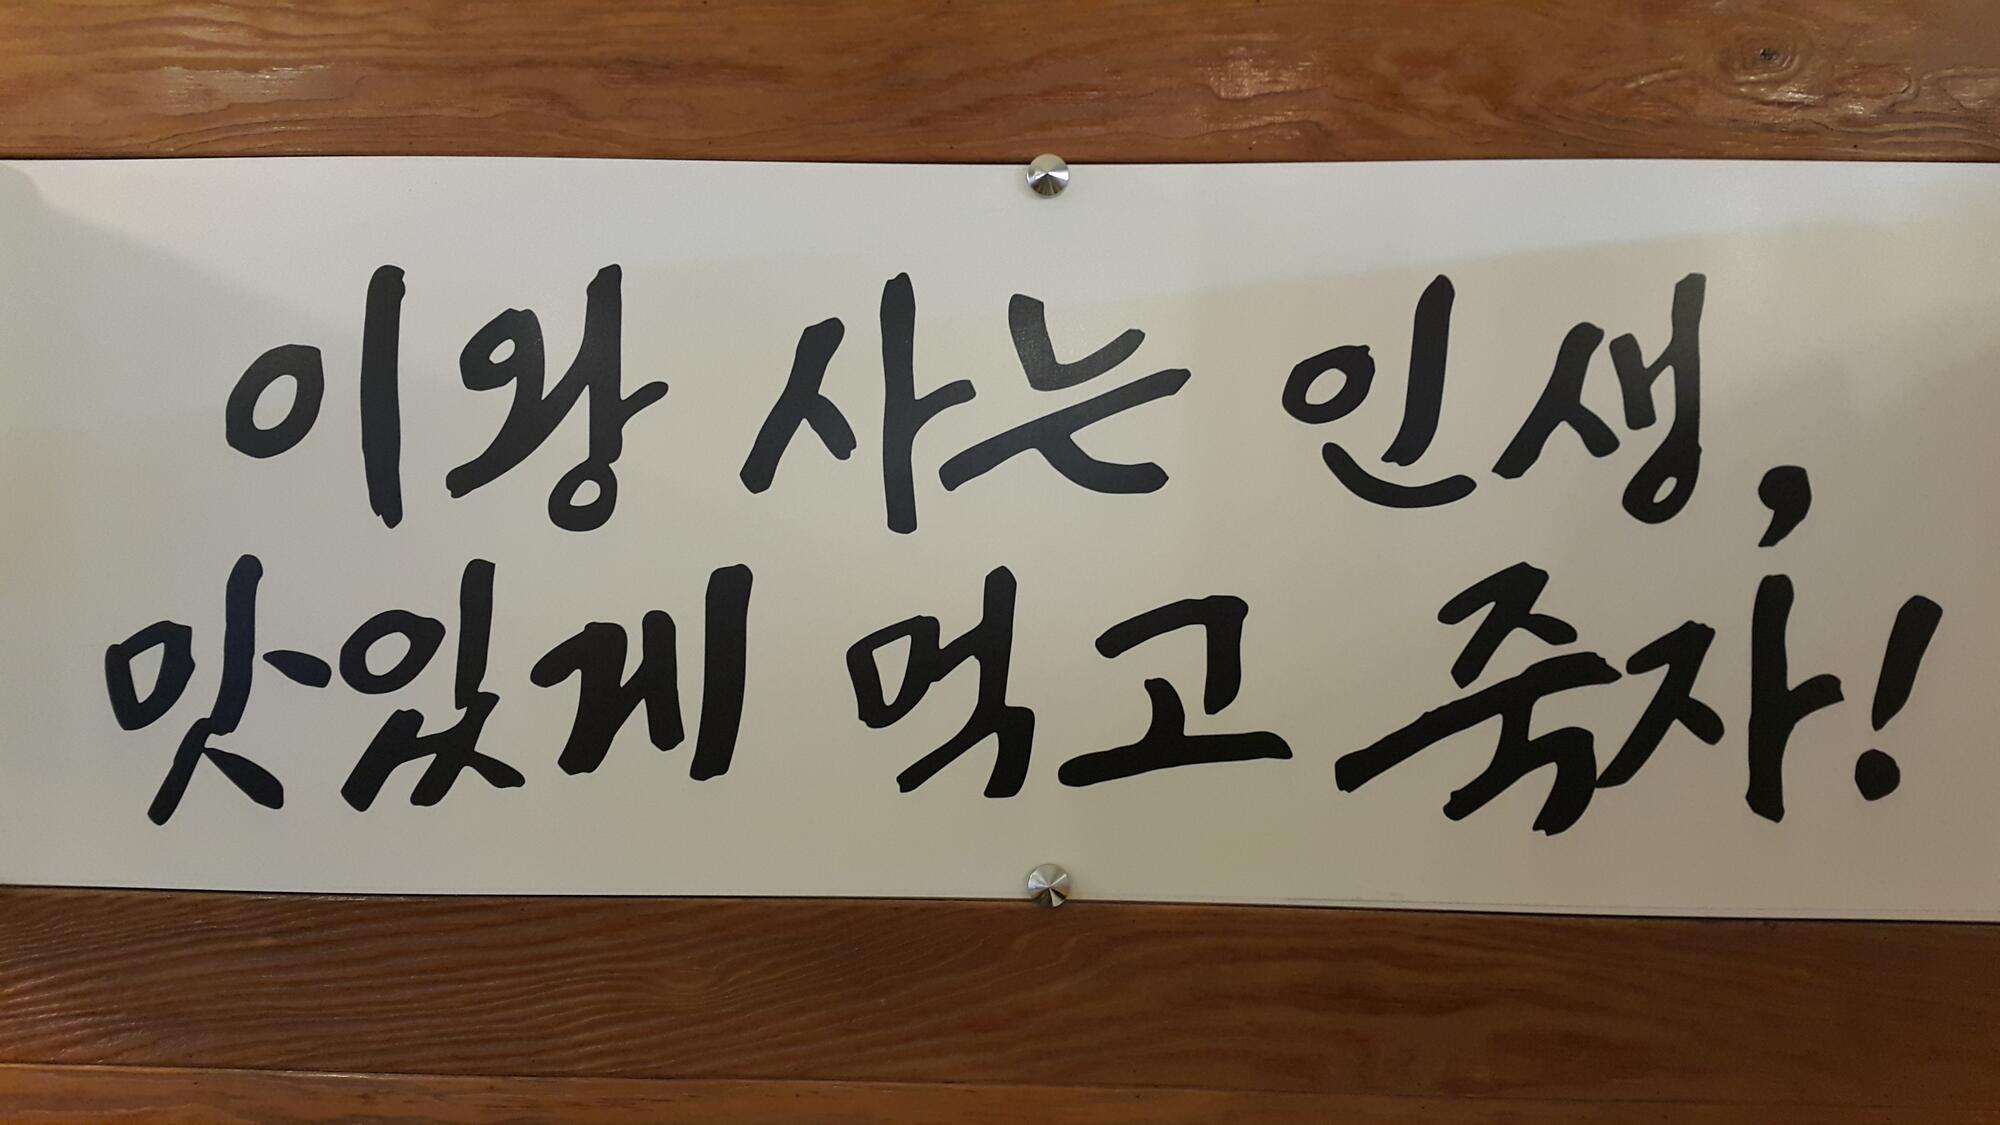 이왕 사는 인생,
맛있게 먹고 죽자!